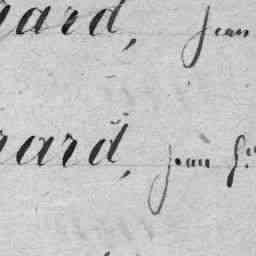 gard, Jean
rard, Jean